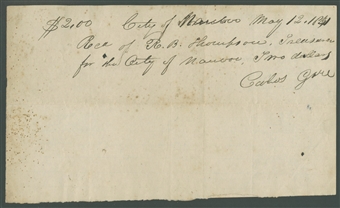 $2.00 City of Nauvoo May 12, 1841
Rec of R. B. Thompson, Treasurer
for the City of Nauvoo, Two dollars